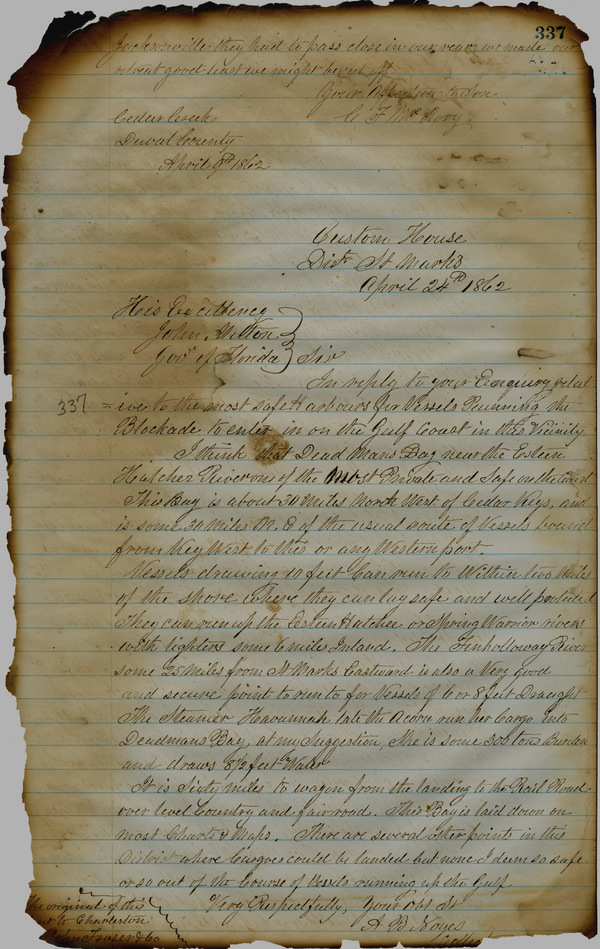 337
Jacksonville they had to pass close in our rear we made our
retreat good least we might be cut off
Your Affectionate Son
C F McRory
Cedar Creek
Duval County
April 9th 1862
Custom House
Dist St Marks
April 24th 1862
His Excellency
John Milton
Govr of Florida } Sir
In reply to your Enquiry relat
337
=ive to the most safe Harbours for Vessels Running the
Blockade to enter in on the Gulf Coast in this Vicinity
I think that Dead Mans Bay near the Estein
Hatchee River one of the Most Private and Safe on the Coast
This Bay is about 30 Miles North West of Cedar Keys, and
is some 30 Miles N. E of the usual route of Vessels bound
from Key West to this or any Western port.
Vessels drawing 10 feet Can run to Within two Miles
of the shore where they can lay safe and well protected
They can run up the Estein Hatchee or Spring Warrior rivers
with lighters some 6 miles Inland. The Finholloway River
some 25 Miles from St Marks Eastward is also a Very good
and secure point to run to for Vessels of 6 or 8 feet Draught
The Steamer Havannah late the Acorn run her Cargo into
Deadmans Bay, at my Suggestion, She is some 300 tons Burden
and draws 8½ feet Water
It is Sixty miles to wagon from the landing to the Rail Road
over level Country and fair road. This Bay is laid down on
most Charts & Maps. There are several other points in this
District where Cargoes could be landed but none I deem so safe
or so out of the Course of Vessels running up the Gulf
Very Respectfully, Your Obt St
A B Noyes
The original of this
sent to Charleston
John Fraser & Co